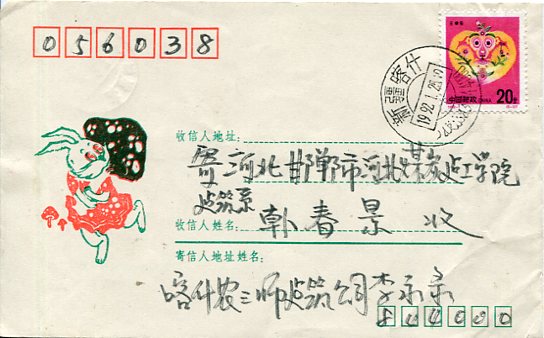 056038
壬申年
新疆喀什
1992.1.25
中国邮政 CHINA
20分
收信人地址:
寄河北邯郸市河北煤炭建工学院
建筑系
收信人姓名: 韩春景 收
寄信人地址姓名:
喀什农三师建筑公司李
844000